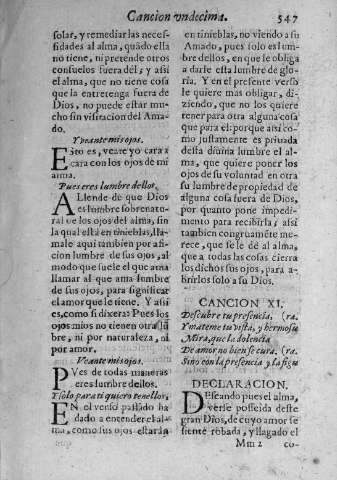 Cancion vndecima. 547
solar, y remediar las necef-
sidades al alma, quãdo ella
no tiene, ni pretende otros
consuelos fuera dèl, y assi
el alma, que no tiene cosa
que la entretenga fuera de
Dios, no puede estar mu-
cho sin visitacion del Ama-
do.
Y veante mis ojos.
Esto es, veate yo cara a
cara con los ojos de mi
alma.
Pues eres lumbre dellos.
ALlende de que Dios
es lumbre sobrenatu-
ral de los ojos del alma, sin
la qual està en tinieblas, lla-
male aqui tambien por afi-
cion lumbre de sus ojos, al
modo que suele el que ama
llamar al que ama lumbre
de sus ojos, para significar
el amor que le tiene. Y assi
es, como si dixera: Pues los
ojos mios no tienen otra lu-
bre, ni por naturaleza, ni
por amor.
Veante mis ojos.
PVes de todas maneras
eres lumbre dellos.
Y solo para ti quiero tenellos,
EN el verso passado ha
dado a entender el al-
ma, como sus ojos estarán
en tinieblas, no viendo a su
Amado, pues solo es lum-
bre dellos, en que le obliga
a darle esta lumbre de glo-
ria. Y en el presente verso
le quiere mas obligar, di-
ziendo, que no los quiere
tener para otra alguna cosa
que para el: porque assi co-
mo justamente es priuada
desta diuina lumbre el al-
ma, que quiere poner los
ojos de su voluntad en otra
su lumbre de propiedad de
alguna cosa fuera de Dios,
por quanto pone impedi-
mento para recibirla; assi
tambien congruamẽte me-
rece, que se le dè al alma,
que a todas las cosas cierra
los dichos sus ojos, para a-
brirlos solo a su Dios.
CANCION XI.
Descubre tu presencia, (ra.
Y mateme tu vista, y hermosu
Mira, que la dolencia
De amor no bien se cura, (ra.
Sino con la presencia y la figu
DECLARACION.
DEseando pues el alma,
verse posseida deste
gran Dios, de cuyo amor se
siente robada, y llagado el
Mm 2 co-